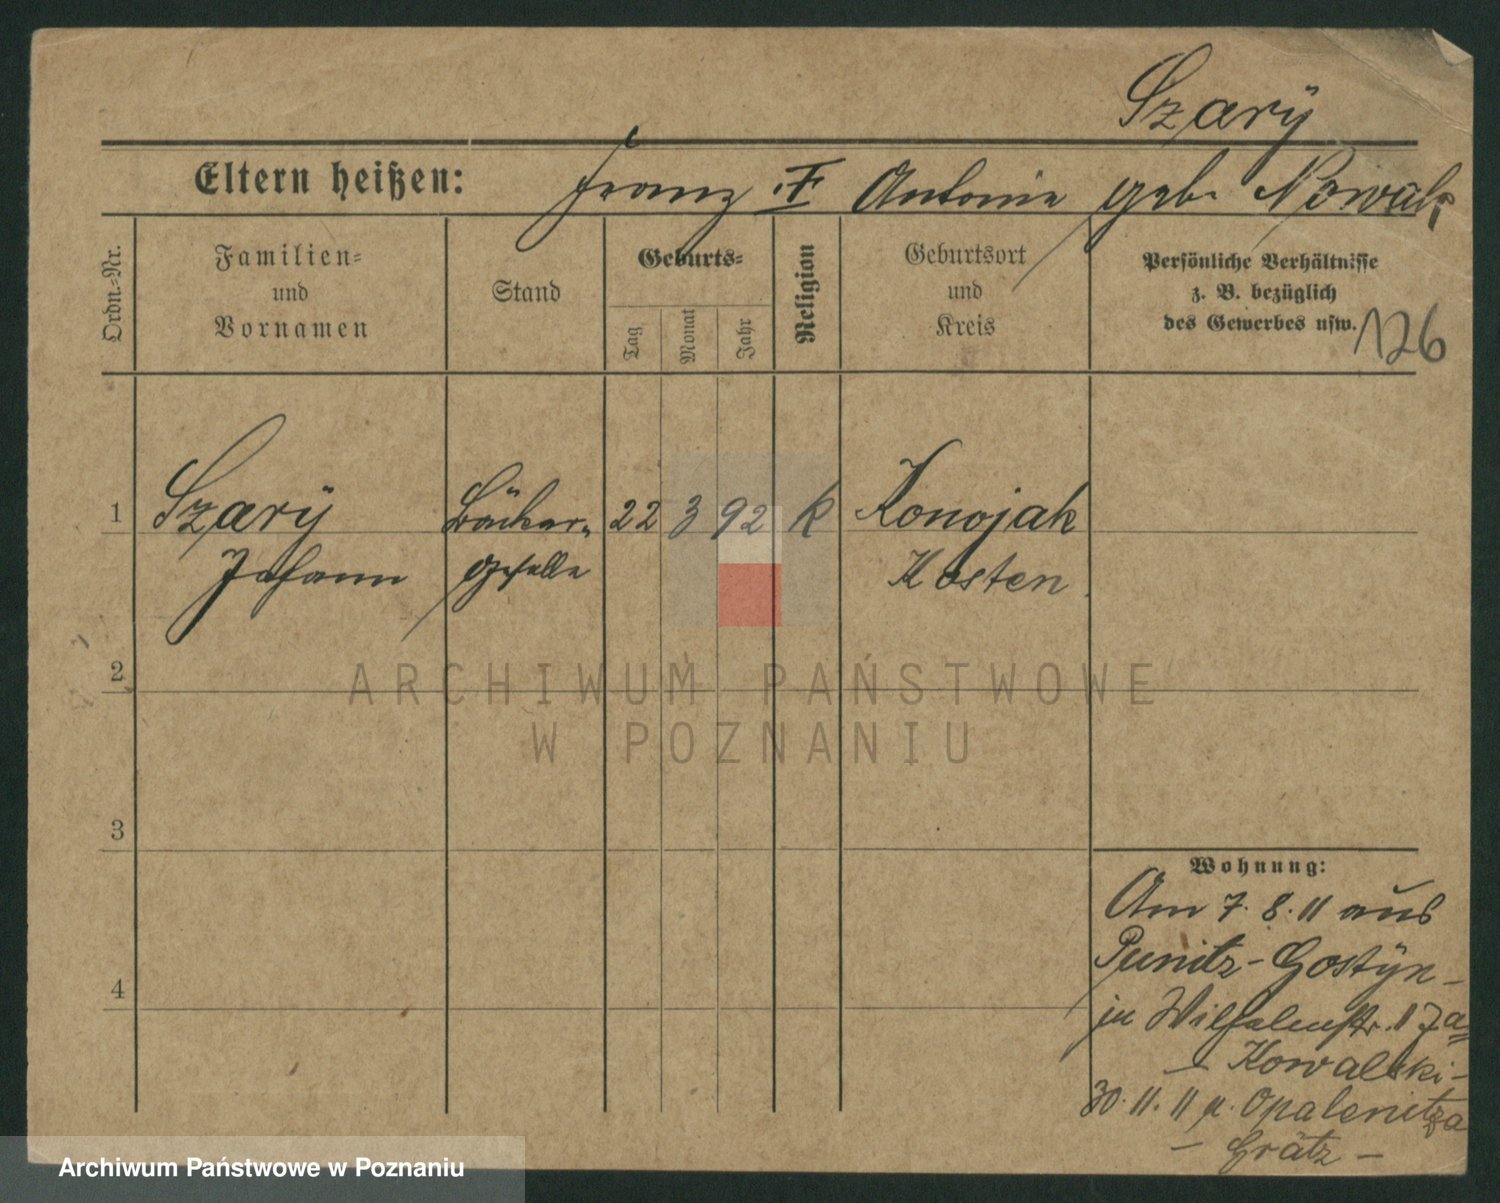 Szarÿ
Eltern heißen: Franz Antonie geb. Nowak
Ordn.-Nr.
Familien-
und
Vornamen
Stand
Geburts-
Tag
Monat
Jahr
Religion
Geburtsort
und
Kreis
Persönliche Verhältnisse
z. B. bezüglich
des Gewerbes usw.
126
1 Szarÿ Bäcker- 22 3 92 k Konojak
Johann geselle Kosten
2
ARCHIWUM PAŃSTWOWE
W POZNANIU
3
Wohnung:
Am 7. 8. 11 aus
Punitz-Gostÿn-
4
in Wilhelmstr. 11
- Kowalski-
30. 11. 11 n. Opalenitza
- Grätz -
Archiwum Państwowe w Poznaniu